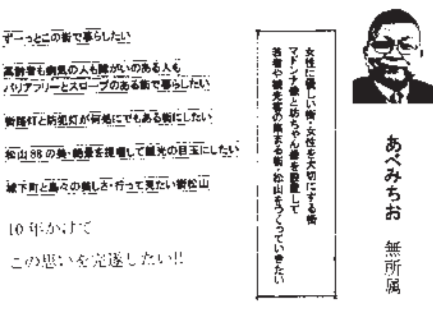 あべみちお 無所属
女性に優しい街・女性を大切にする街
マドンナ像と坊ちゃん像を設置して
若者や観光客の集まる街・松山をつくっていきたい
ずーっとこの街で暮らしたい
高齢者も病気の人も障がいのある人も
バリアフリーとスロープのある街で暮らしたい
街路灯と防犯灯が何処にでもある街にしたい
松山88の美・絶景を提唱して観光の目玉にしたい
城下町と島々の美しさ・行って見たい街松山
10年かけて
この思いを完遂したい!!